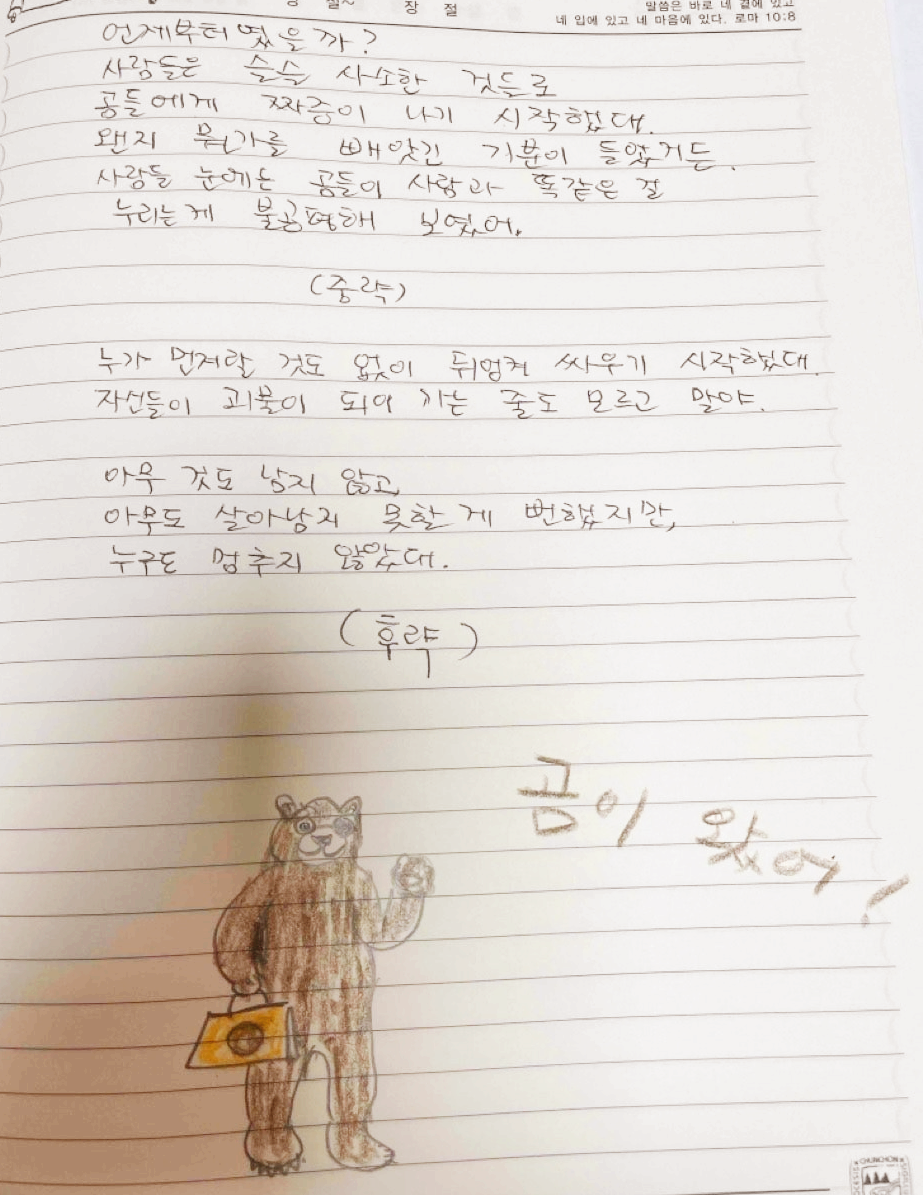 장 절
말씀은 바로 네 곁에 있고
네 입에 있고 네 마음에 있다. 로마 10:8
언제부터 였을까?
사람들은 슬슬 사소한 것들로
곰들에게 짜증이 나기 시작했대.
왠지 뭔가를 빼앗긴 기분이 들었거든.
사람들 눈에는 곰들이 사람과 똑같은 걸
누리는게 불공평해 보였어.
(중략)
누가 먼저랄 것도 없이 뒤엉켜 싸우기 시작했대.
자신들이 괴물이 되어 가는 줄도 모르고 말야.
아무 것도 남지 않고,
아무도 살아남지 못할 게 뻔했지만,
누구도 멈추지 않았대.
(후략)
곰이 왔어!
CHUNCHON